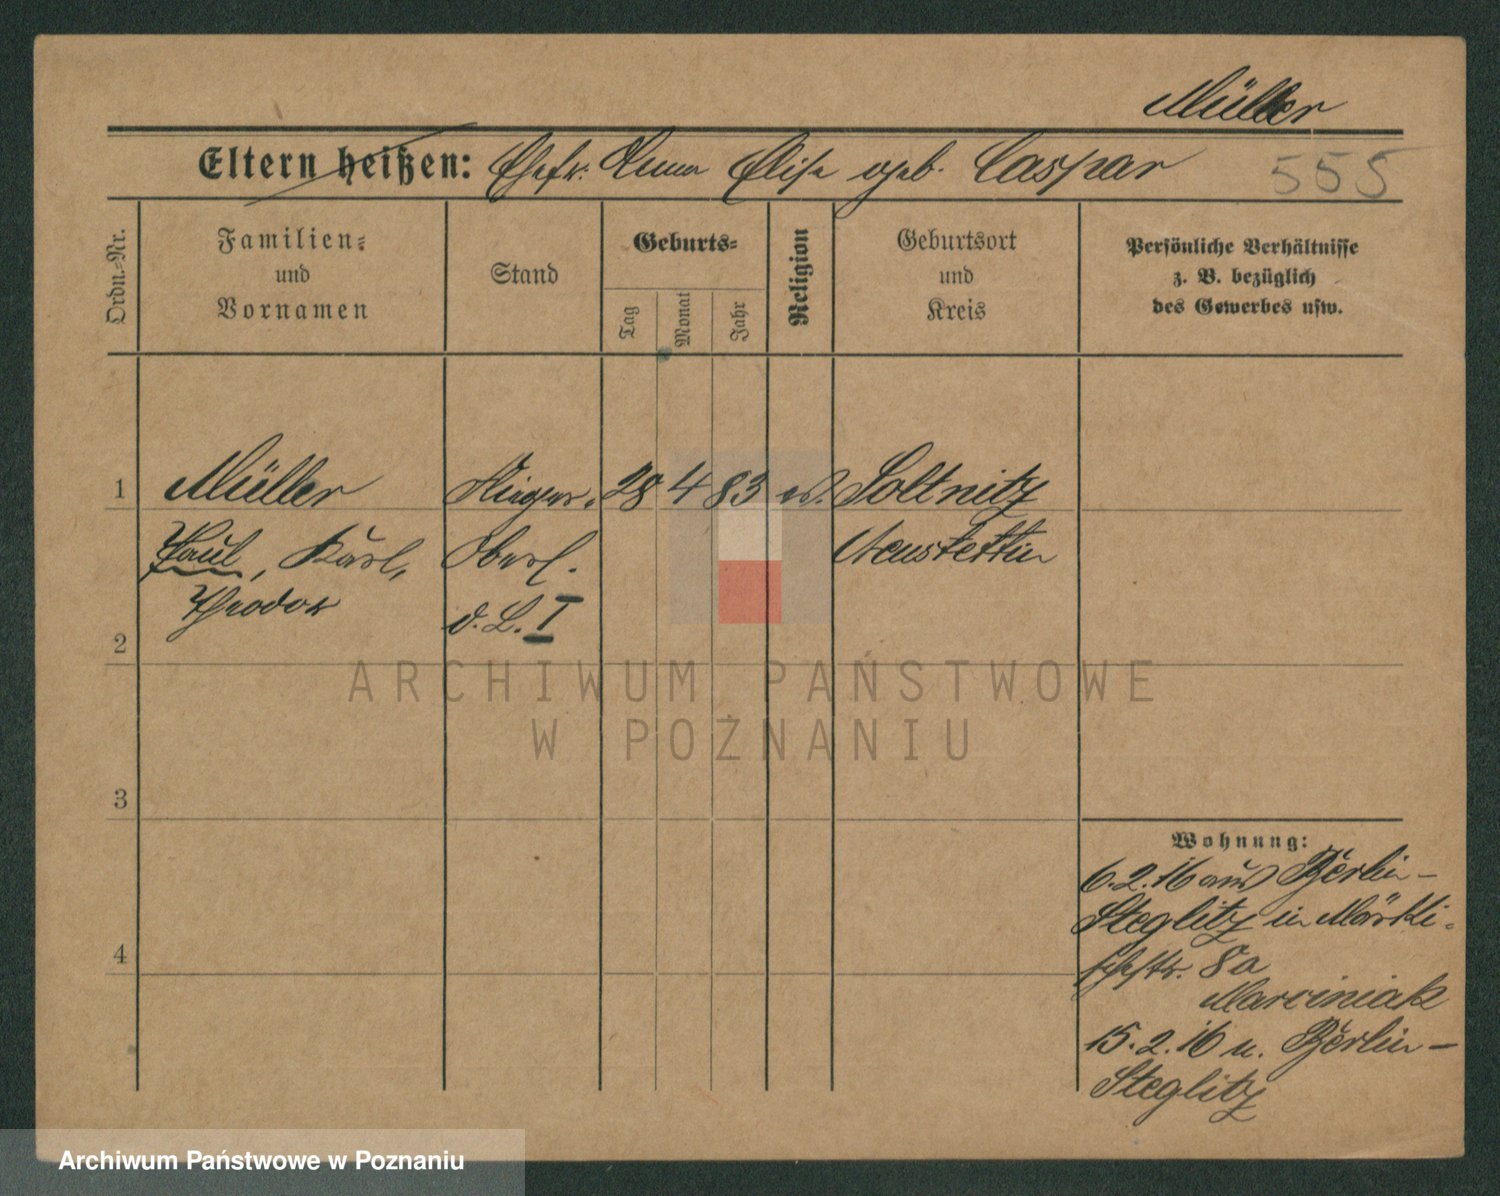 Müller
Eltern heißen: Ehefr. Anna Elise geb. Caspar
555
Ordn.-Nr.
Familien-
und
Vornamen
Stand
Geburts-
Tag
Monat
Jahr
Religion
Geburtsort
und
Kreis
Persönliche Verhältnisse
z. B. bezüglich
des Gewerbes usw.
1 Müller 28 4 83 ev. Soltnitz
Paul, Karl, Oberl. Neustettin
Theodor d. L. I
2
ARCHIWUM PAŃSTWOWE
W POZNANIU
3
Wohnung:
6.2.16 aus Berlin-
Steglitz in Märki-
schestr. 8a
4
Marciniak
15.2.16 n. Berlin-
Steglitz
Archiwum Państwowe w Poznaniu